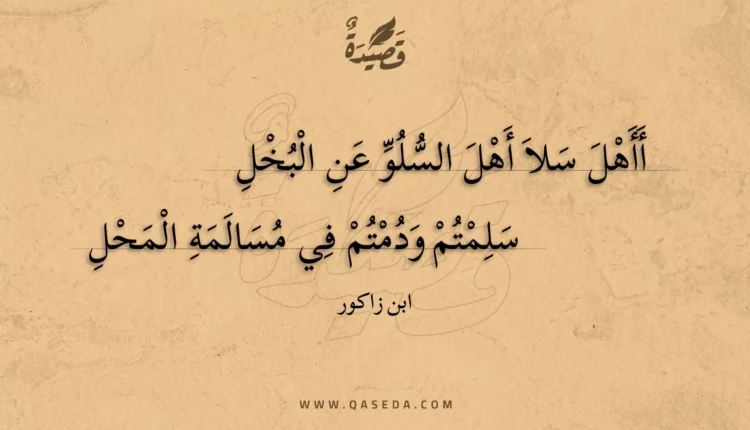 قَصِيْدَةٌ
أَأَهْلَ سَلاَ أَهْلَ السُّلُوِّ عَنِ الْبُخْلِ
سَلِمْتُمْ وَدُمْتُمْ فِي مُسَالَمَةِ الْمَحْلِ
ابن زاكور
WWW.QASEDA.COM